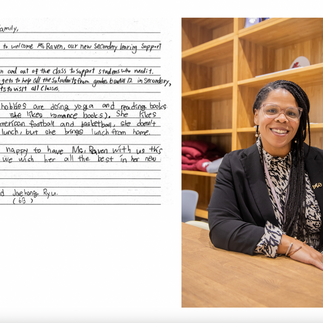 Family,
to welcome Ms. Raven, our new Secondary learning support
and out of the class to support students who need it.
to help all the students from grades 6 until 12 in Secondary,
to visit all classes.
hobbies are doing yoga and reading books
she likes romance books). She likes
American football and basketball, she doesn't
lunch, but she brings lunch from home.
happy to have Ms. Raven with us this
we wish her all the best in her new
d Jaehong Ryu.